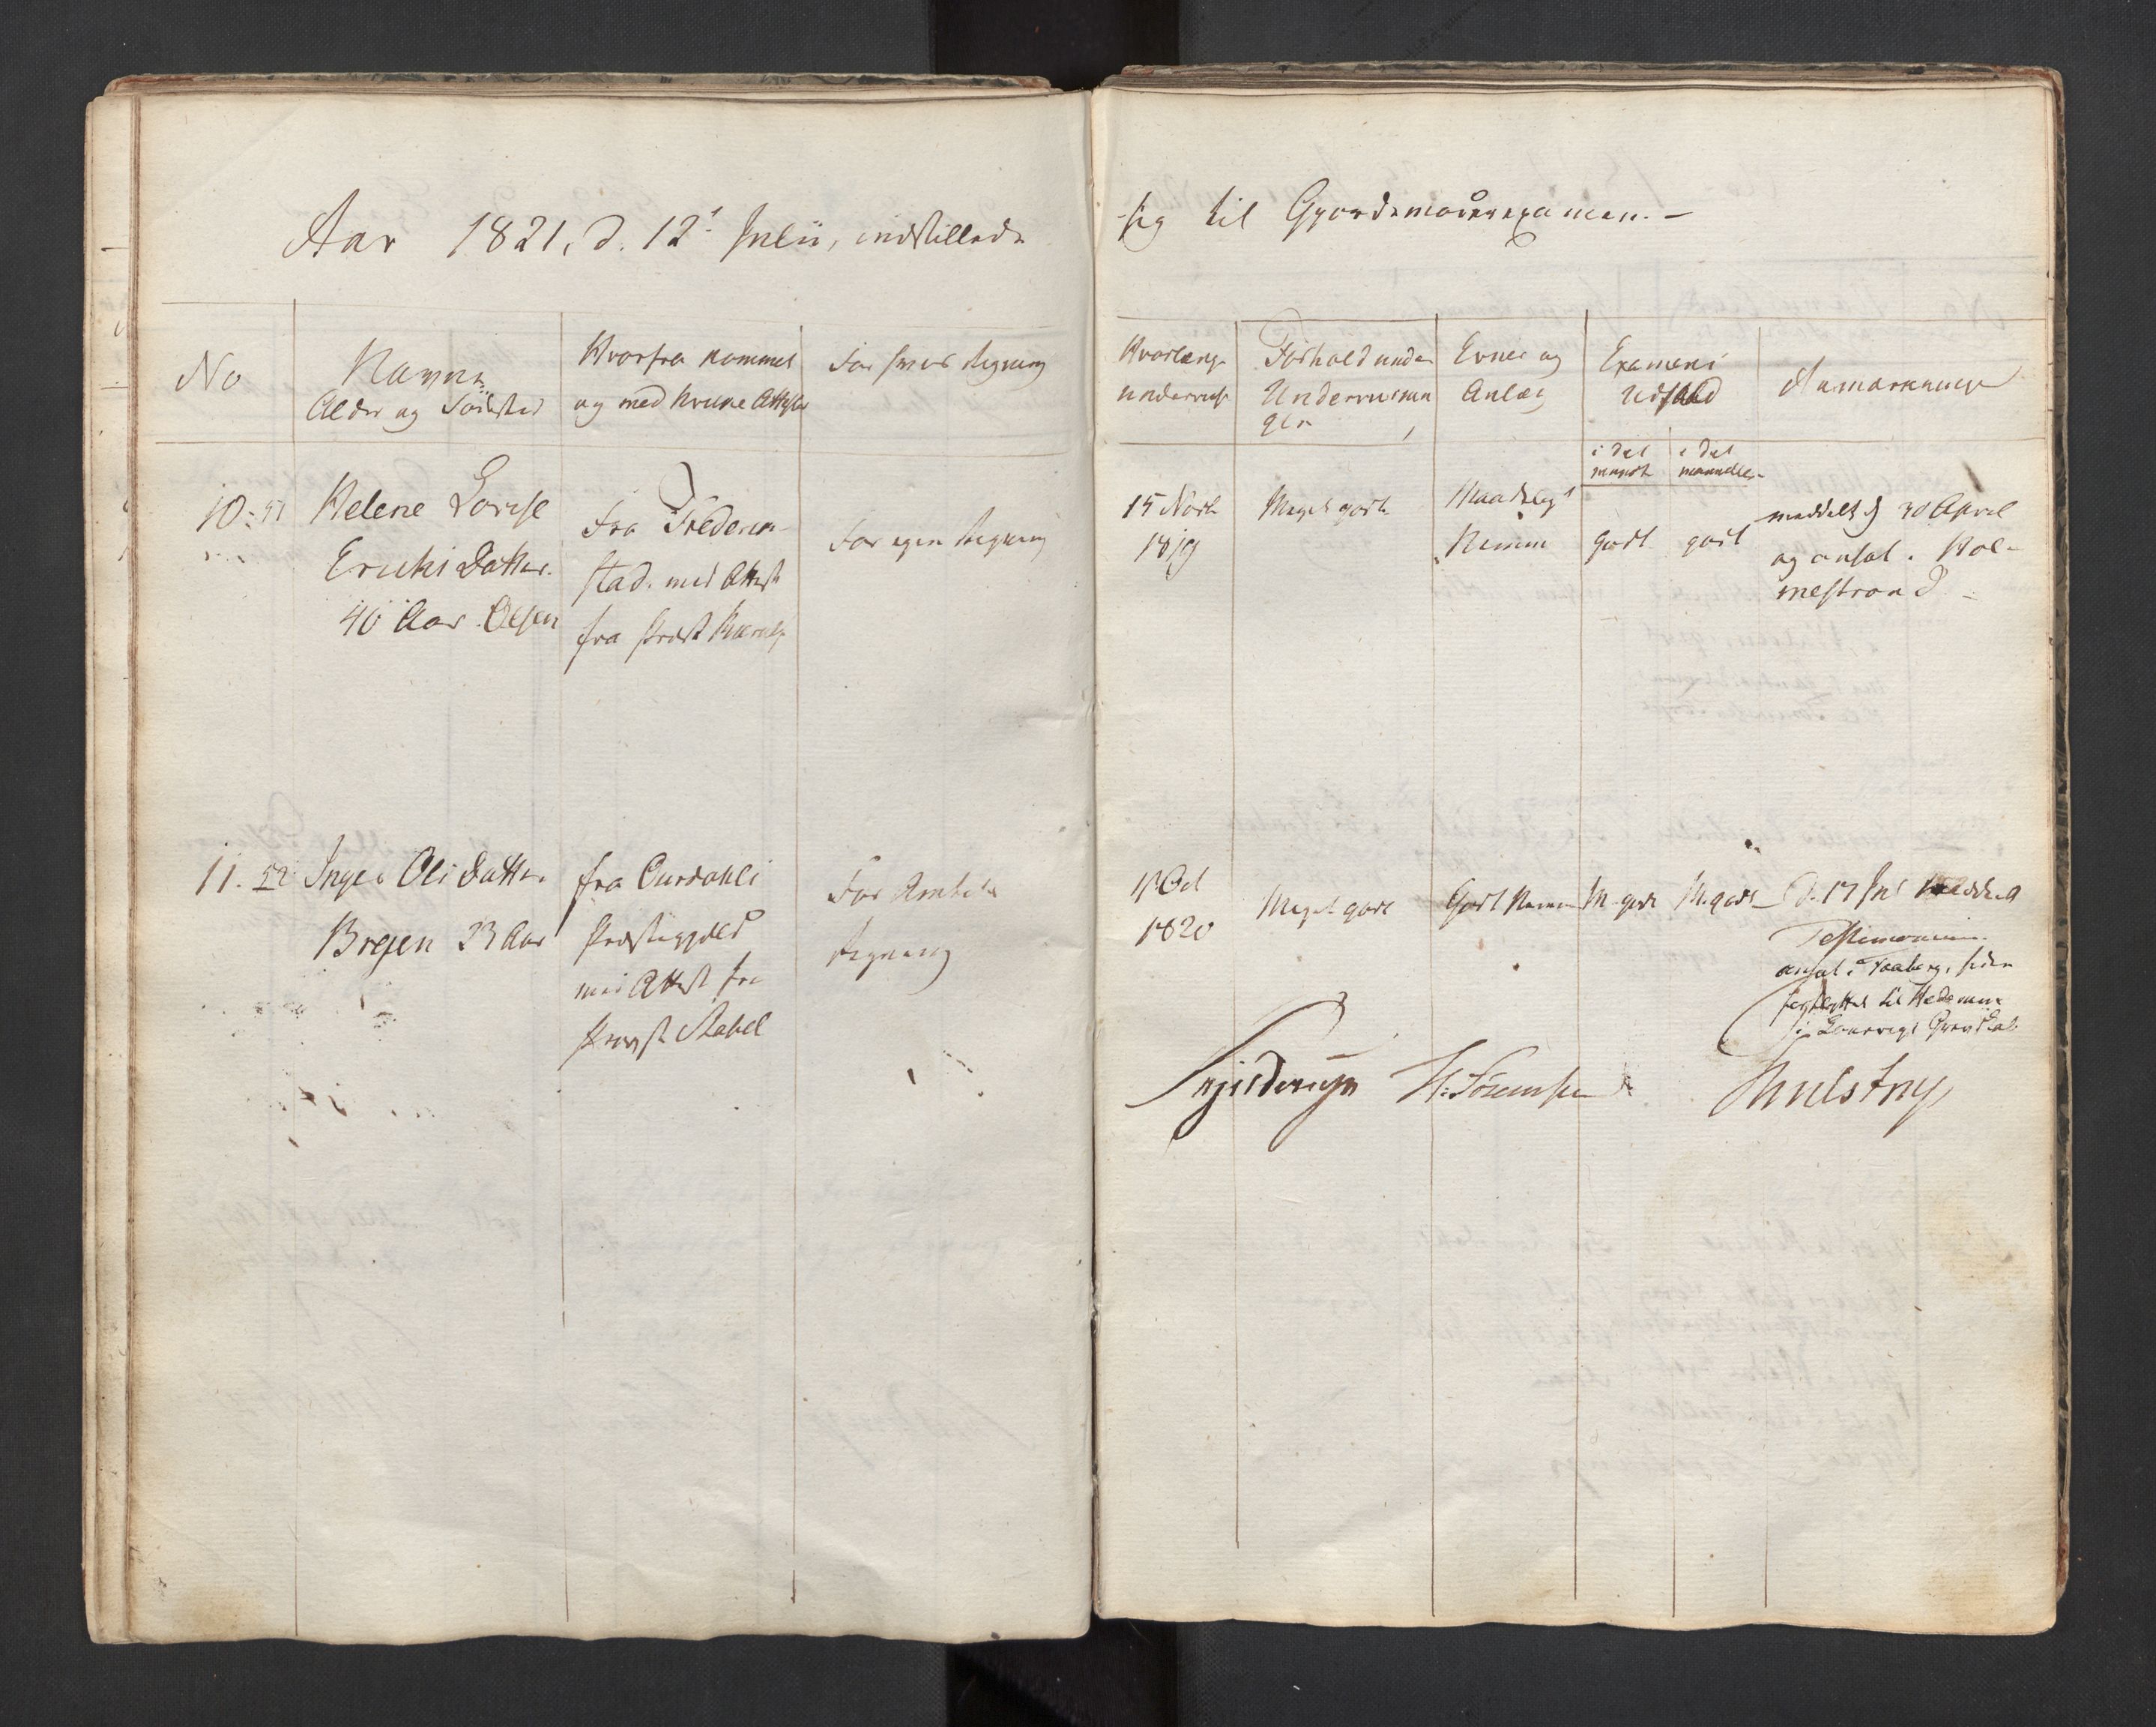 Aar 1821, d. 12t Julii, indstillede
sig til Gjordemoderexamen. -
No
Navn
Alder og Födested
Hvorfra kommet
og med hvilke Attester
For hvis Regning
Hvorlænge
undervist
Forhold under
Undervisnin
gen
Evner og
Anlæg
Examens
Udfald
i det
mundt
i det
manuelle
Anmærkninger
10. 51
Helene Lovise
Erichs Datter.
40 Aar. Olsen
Fra Frederik-
stad. med Attest
fra Provst
For egen Regning
15 Novb
1819
Meget godt
Maadeligt
Nemme
godt
godt
meddelt d 30 April
og ansat i Hol-
mestrand. -
11. 52
Inger Ols Datter.
Brejen 23 Aar
fra Ourdahls
Præstegjeld
med Attest fra
Provst Stabel
For Amtets
Regning
1 Oct
1820
Meget godt
Godt Nemme
M. godt
M. godt
D. 17 Jul meddelt
Testimonium.
ansat i Faaberg, siden
forflyttet til Hedrum
i Laurvigs Grevskab
H. Sörenssen
Thulstrup